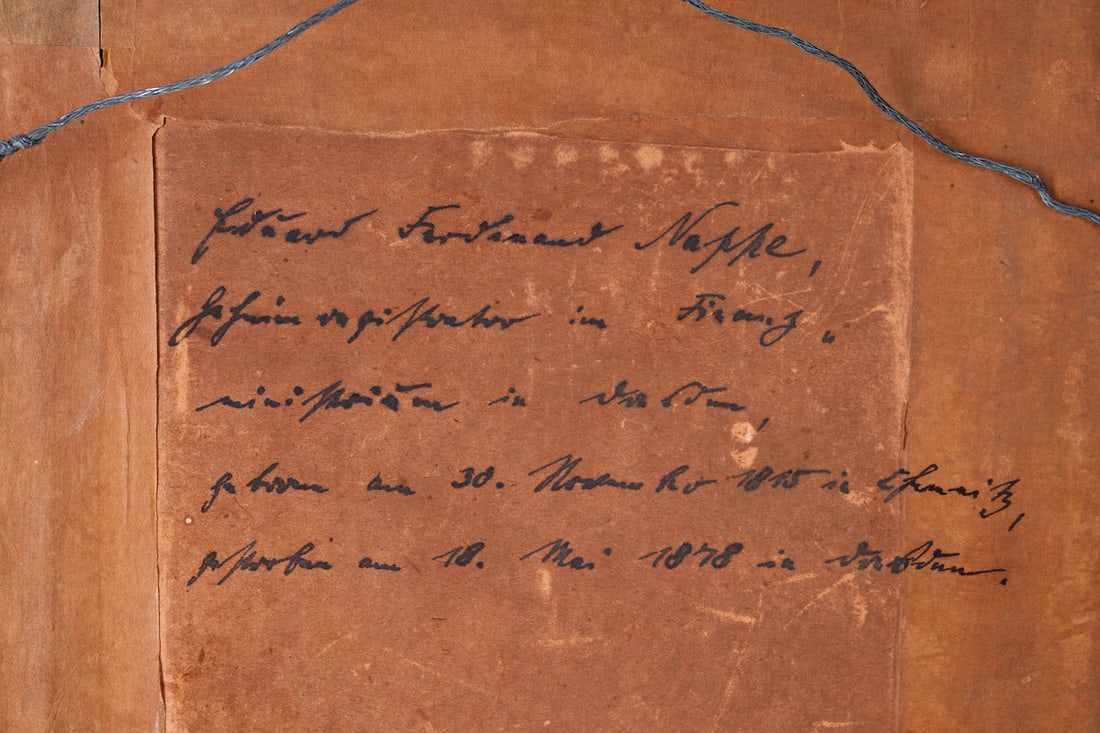 Eduard Ferdinand Nappe,
Geheimregistrator im Finanz„
ministerium in Dresden,
geboren am 30. November 1815 in Chemnitz,
gestorben am 18. Mai 1878 in Dresden.